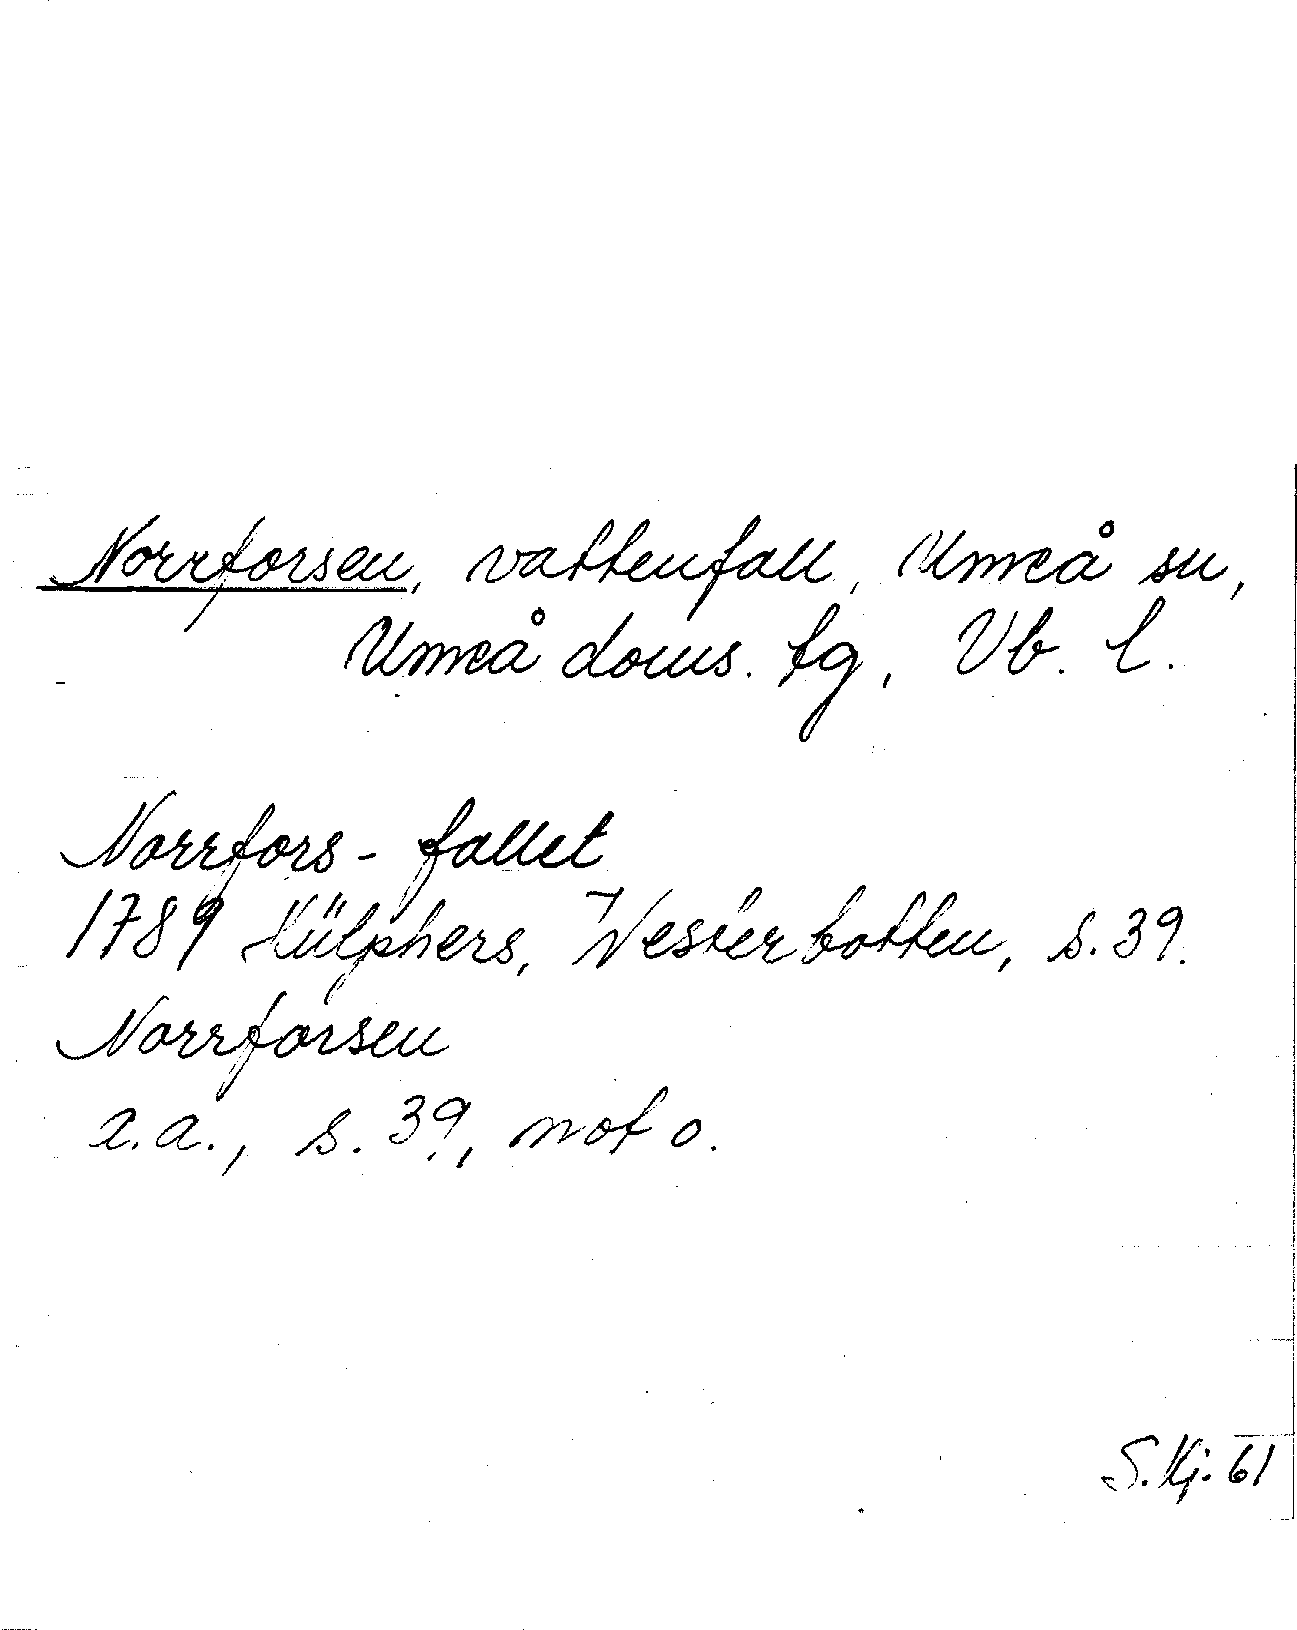 Norrforsen, vattenfall, Umeå sn,
Umeå doms. tg, Vb. l.
Norrfors-fallet
1789 Hülphers, Westerbotten, s. 39.
Norrforsen
a.a., s. 39, not o.
S. Kj. 61